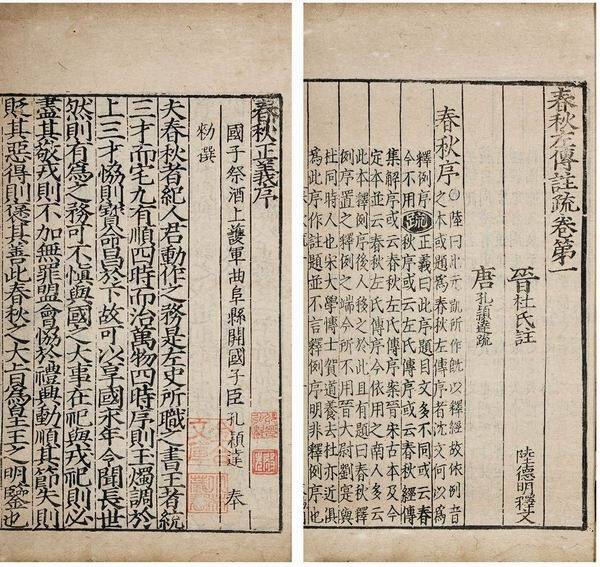 春秋左傳註疏卷第一
晉杜氏註 陸德明釋文
唐孔穎達疏
春秋序○陸曰此元凱所作既以釋經故依例音
之本或題為春秋左傳序者沈文何以為
釋例序疏正義曰此序題目文多不同或云春
今不用秋序或云左氏傳序或云春秋經傳
集解序或云春秋左氏傳序案晉宋古本及今
定本並云春秋左氏傳序今依用之南人多云
此本釋例序後人移之於此且有題曰春秋釋
例序置之釋例之端今所不用晉大尉劉寔與
杜同時人也宋大學博士賀道養去杜亦近俱
為此序作註題並不言釋例序明非釋例序也
春秋正義序
國子祭酒上護軍曲阜縣開國子臣孔穎達 奉
勑撰
夫春秋者紀人君動作之務是左史所職之書王者統
三才而宅九有順四時而治萬物四時序則玉燭調於
上三才協則寶命昌於下故可以享國永年令聞長世
然則有為之務可不慎與國之大事在祀與戎祀則必
盡其敬戎則不加無罪盟會協於禮興動順其節失則
貶其惡得則褒其善此春秋之大旨為皇王之明鑒也